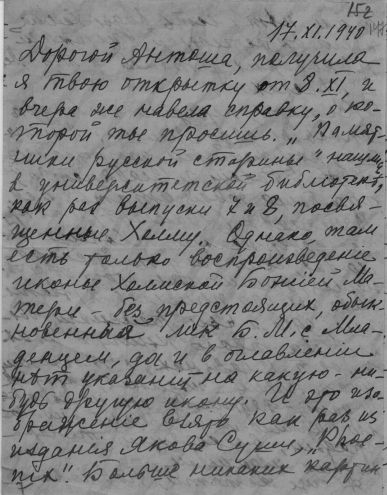 152
17.XI.1940
Дорогой Антоша, получила
я твою открытку от 8.XI, и
вчера же навела справку, о ко-
торой ты просишь. „Памят-
ники русской старины" нашла
в университетской библіотекѣ,
как раз выпуски 7 и 8, посвя-
щенные Холму. Однако, там
есть только воспроизведеніе
иконы Холмской Божіей Ма-
тери – без предстоящих, обык-
новенный лик Б.М. с Мла-
денцем, да и в оглавленіи
нѣт указаній на какую-ни-
будь другую икону. И это изо-
браженіе взято как раз из
изданія Якова Суши, „Phoe-
nix". Больше никаких картин-